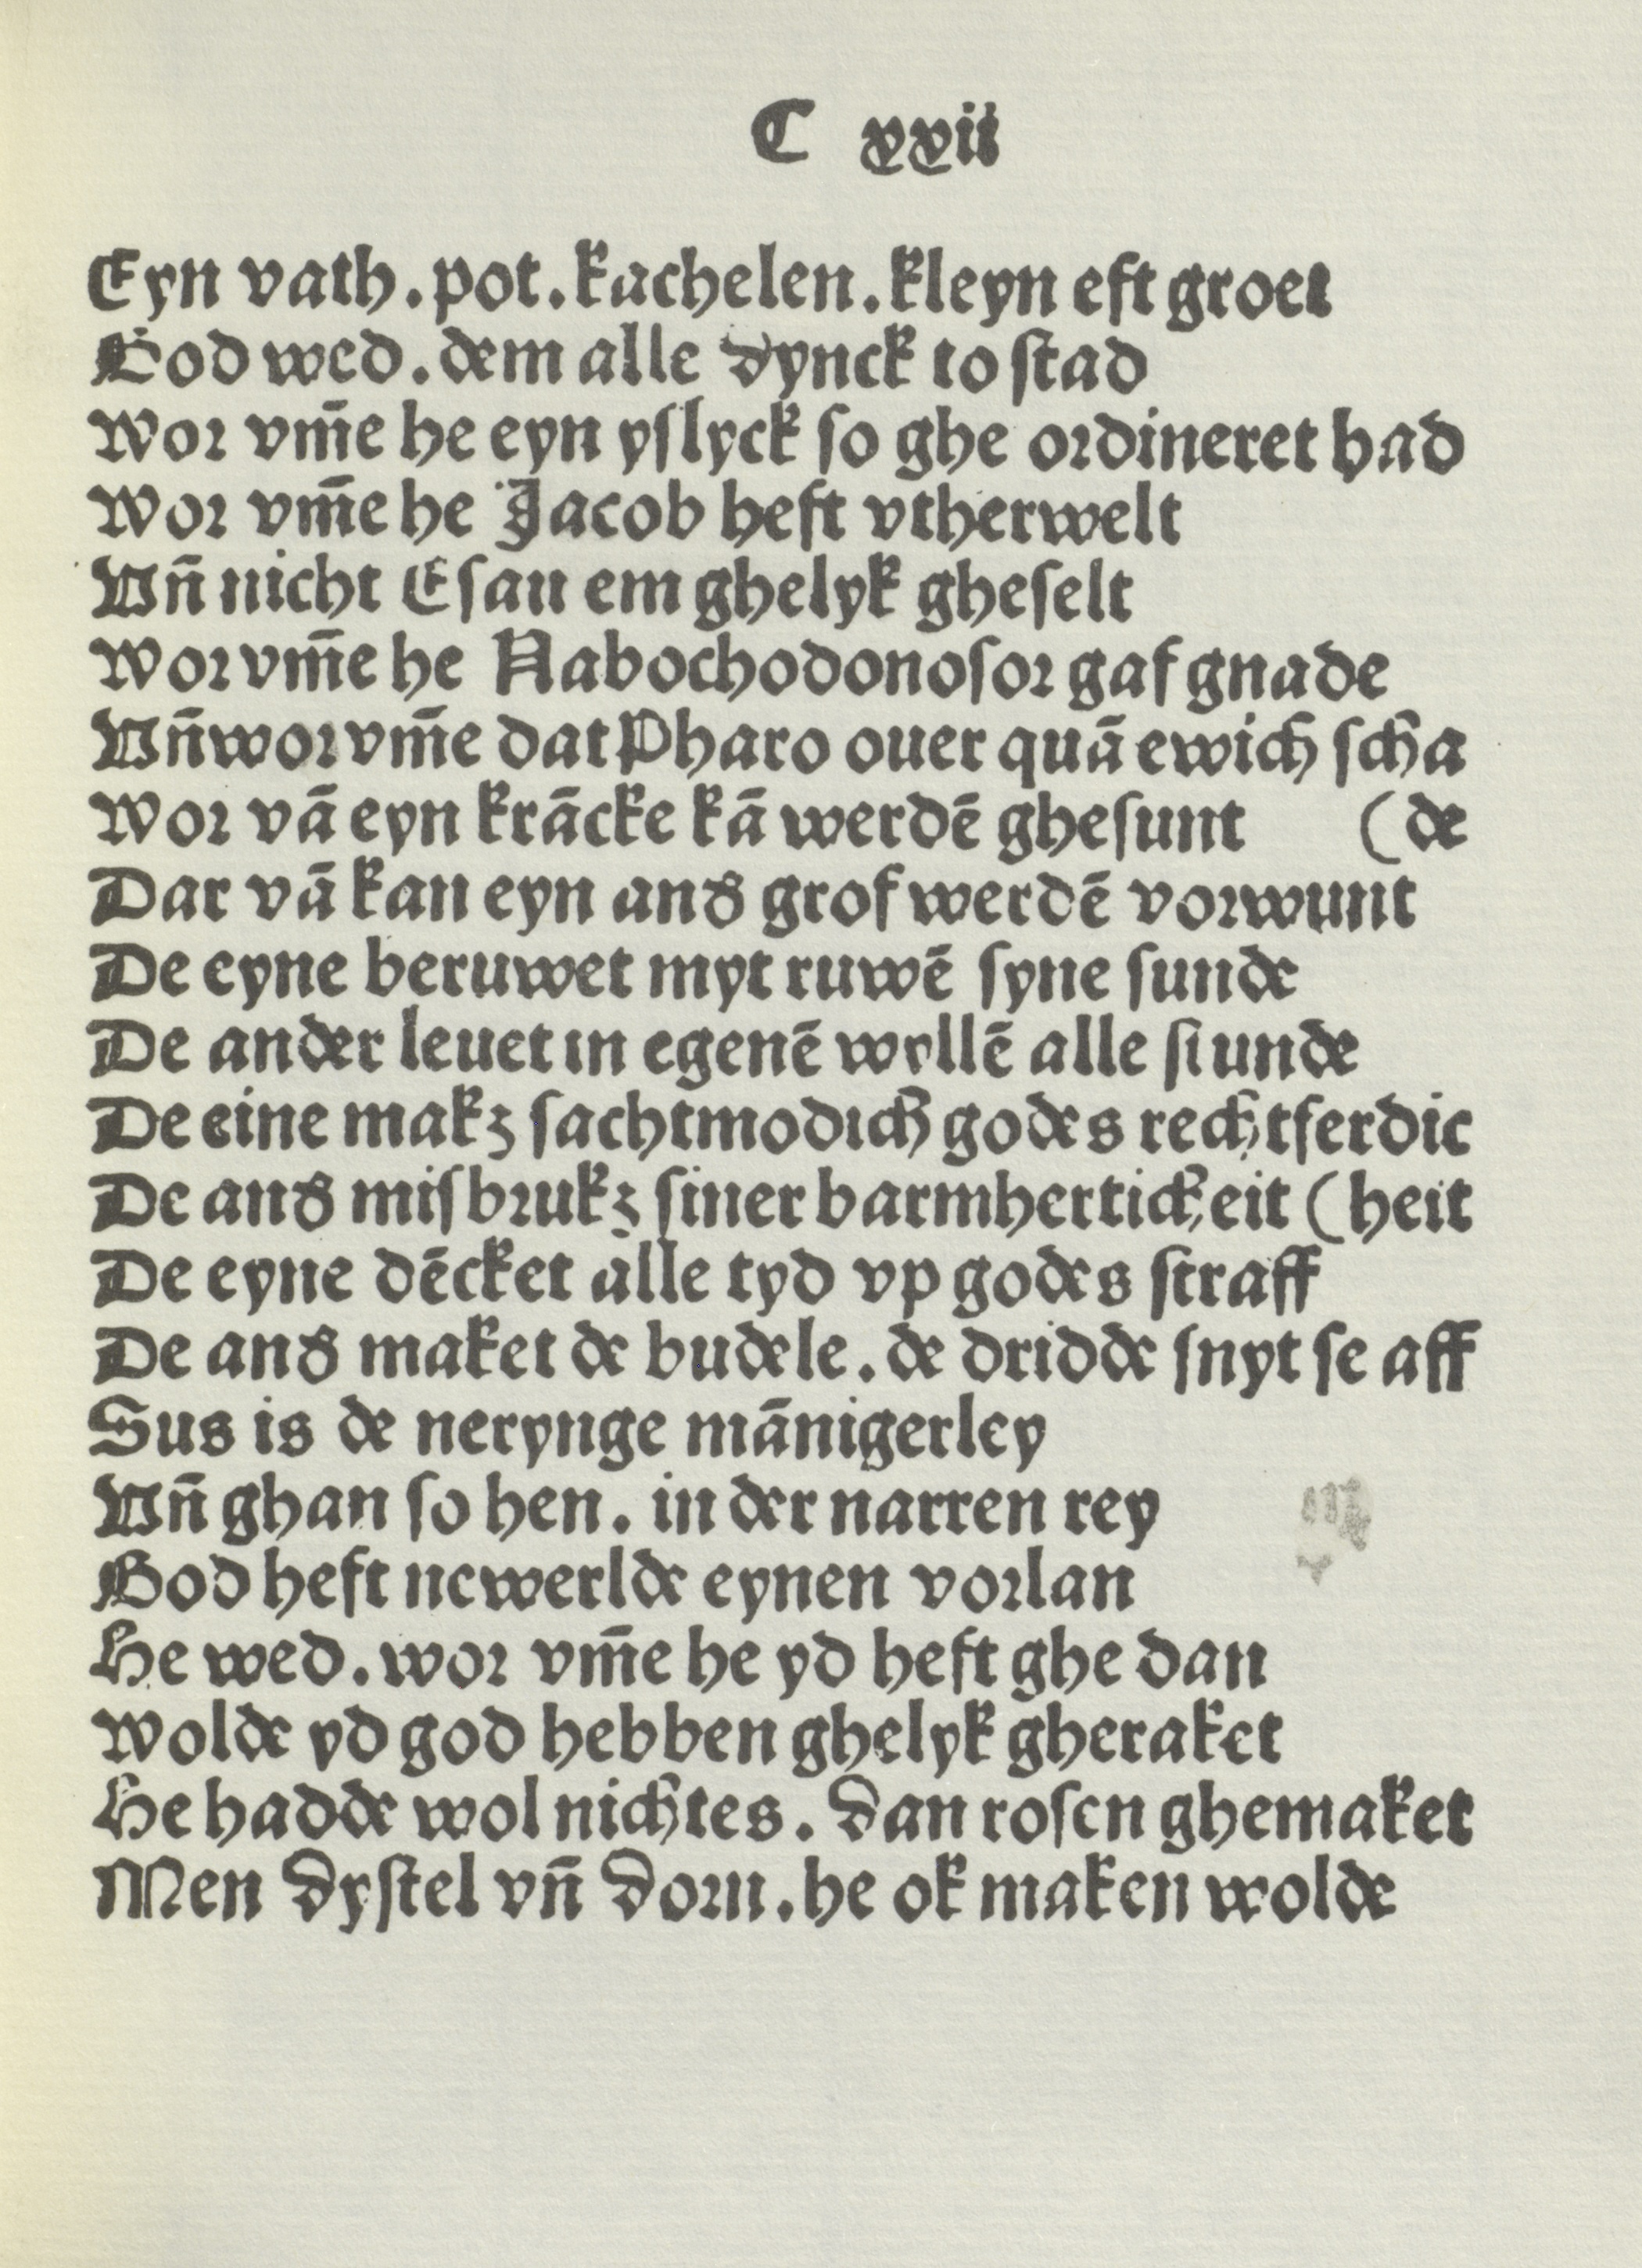 C xxvii
Eyn vath. pot. kachelen. kleyn eft groet
God wed. dem alle dynck to stad
Wor vm̄e he eyn yslyck so ghe ordineret had
Wor vm̄e he Jacob heft vtherwelt
Vn̄ nicht Esau em ghelyk gheselt
Wor vm̄e he Nabochodonosor gaf gnade
Vn̄ wor vm̄e dat Pharo ouer quā ewich scha
Wor vā eyn krācke kā werdē ghesunt (de
Dar vā kan eyn and̕ grof werdē vorwunt
De eyne beruwet myt ruwē syne sunde
De ander leuet in egenē wyllē alle stunde
De eine makꝫ sachtmodich godes rechtferdic
De and̕ misbrukꝫ siner barmherticheit (heit
De eyne dēcket alle tyd vp godes straff
De and̕ maket de budele. de dridde snyt se aff
Sus is de nerynge mānigerley
Vn̄ ghan so hen. in der narren rey
God heft newerlde eynen vorlan
He wed. wor vm̄e he yd heft ghe dan
Wolde yd god hebben ghelyk gheraket
He hadde wol nichtes. dan rosen ghemaket
Men dystel vn̄ dorn. he ok maken wolde